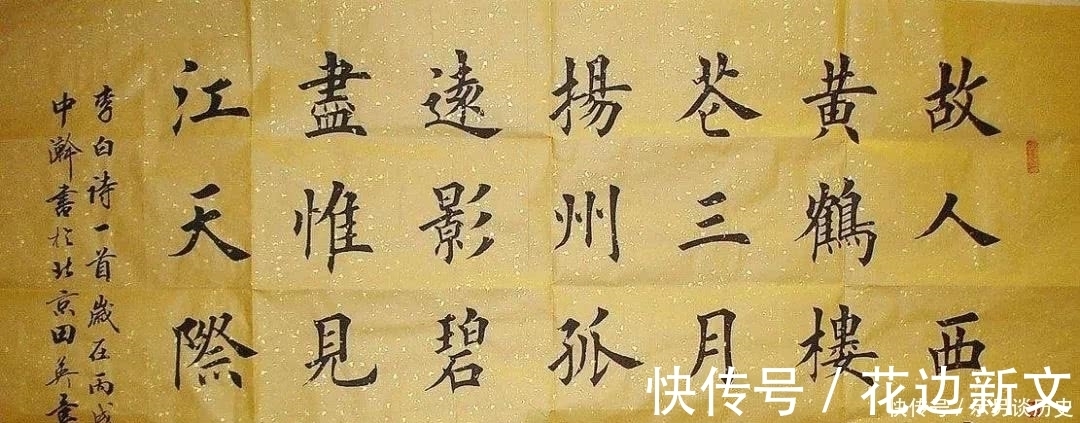 故人西
黄鶴樓
花三月
揚州孤
遠影碧
盡惟見
江天際
李白詩一首歲在丙戌
中瀚書於北京田英章
快传号 / 花边新文